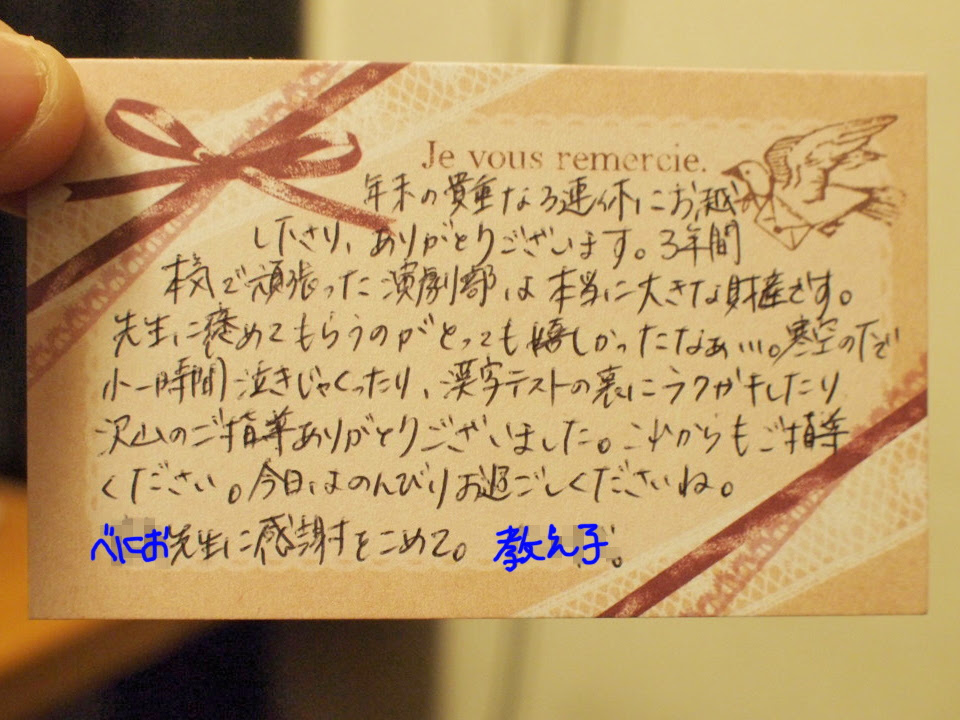 Je vous remercie.
年末の貴重な3連休にお越
し下さり、ありがとうございます。3年間
本気で頑張った演劇部は本当に大きな財産です。
先生に褒めてもらうのがとっても嬉しかったなぁ…。寒空の下で
小一時間泣きじゃくったり、漢字テストの裏にラクガキしたり
沢山のご指導ありがとうございました。これからもご指導
ください。今日はのんびりお過ごしくださいね。
べにお先生に感謝をこめて。教え子。